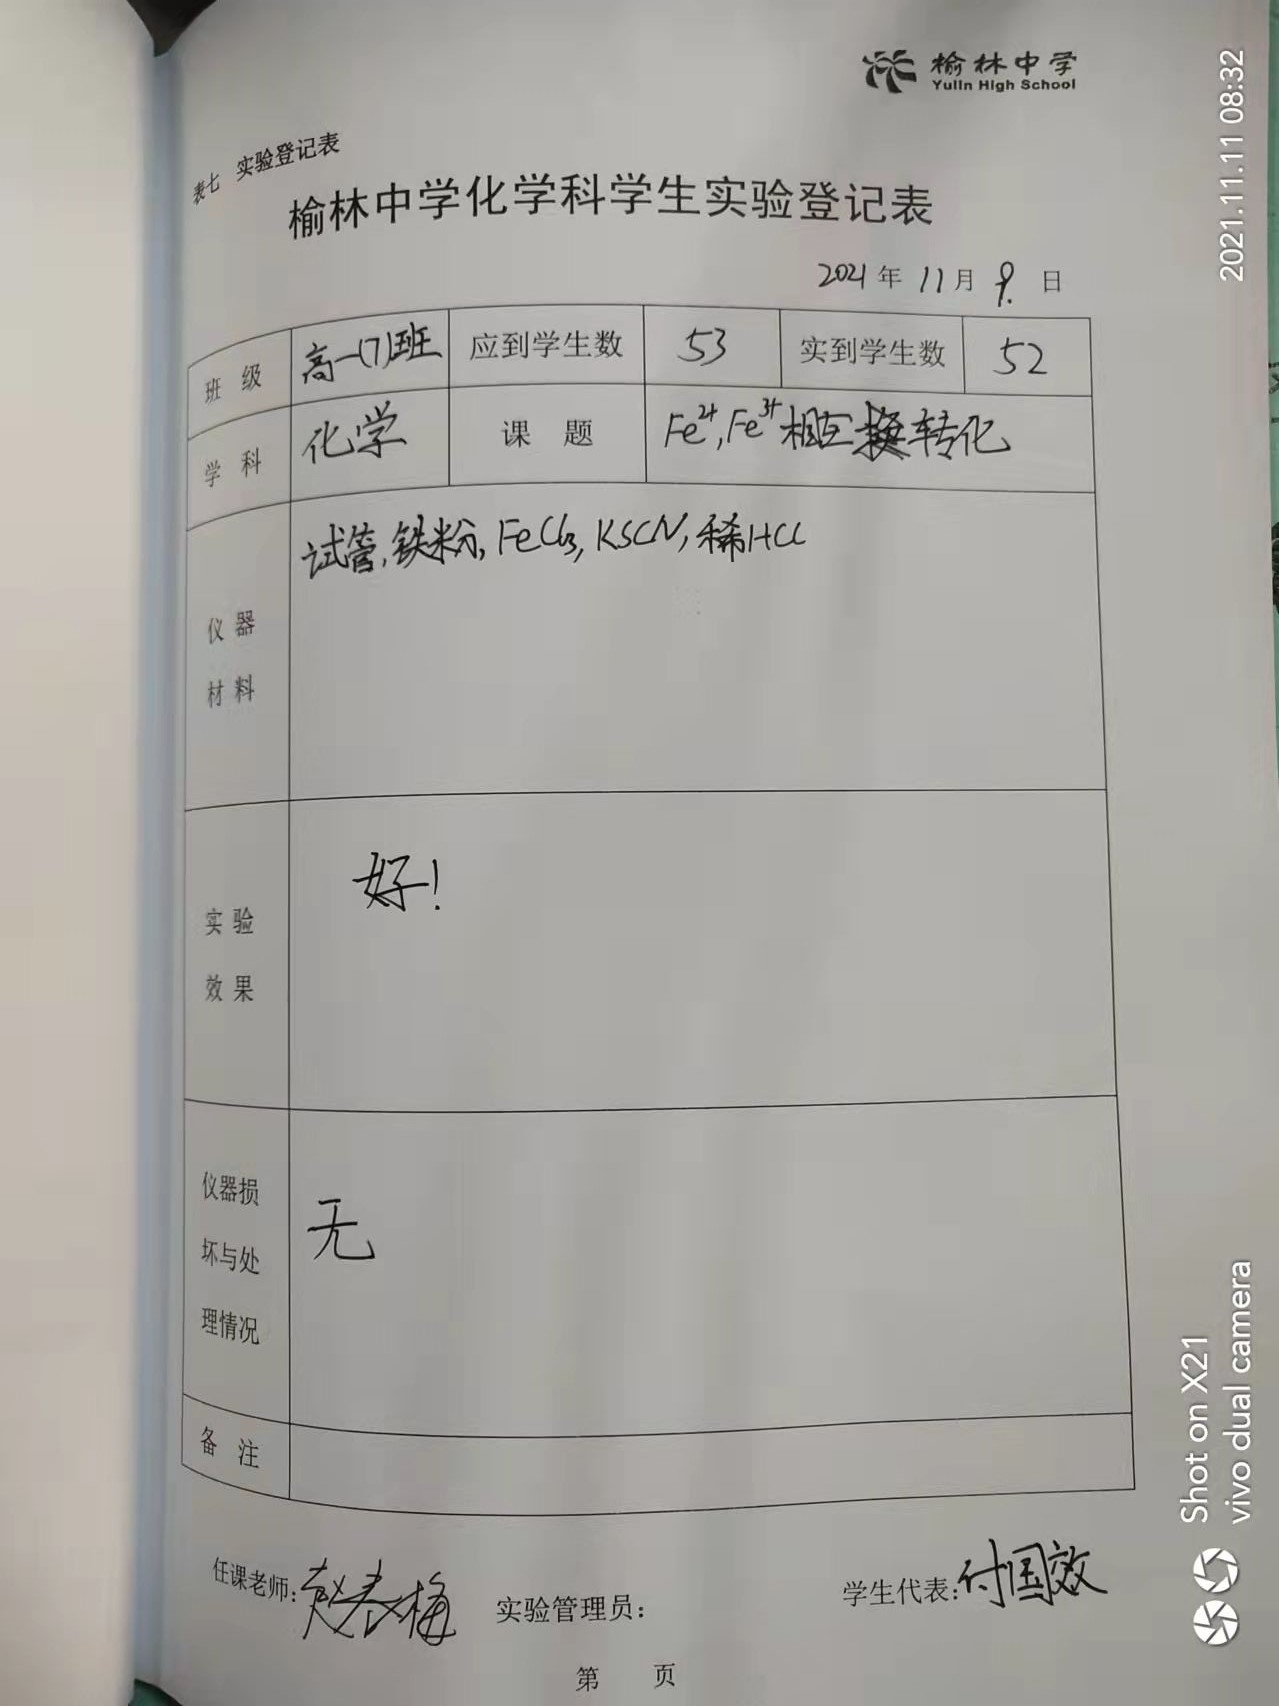 榆林中学
Yulin High School
表七 实验登记表
榆林中学化学科学生实验登记表
2021年11月9.日
班级 高一(7)班 应到学生数 53 实到学生数 52
学科 化学 课题 Fe²⁺,Fe³⁺相互转化
仪器
材料
试管,铁粉,FeCl₃,KSCN,稀HCl
实验
效果
好!
仪器损
坏与处
理情况
无
备注
任课老师:赵春梅 实验管理员: 学生代表:付国效
第 页
2021.11.11 08:32
Shot on X21
vivo dual camera